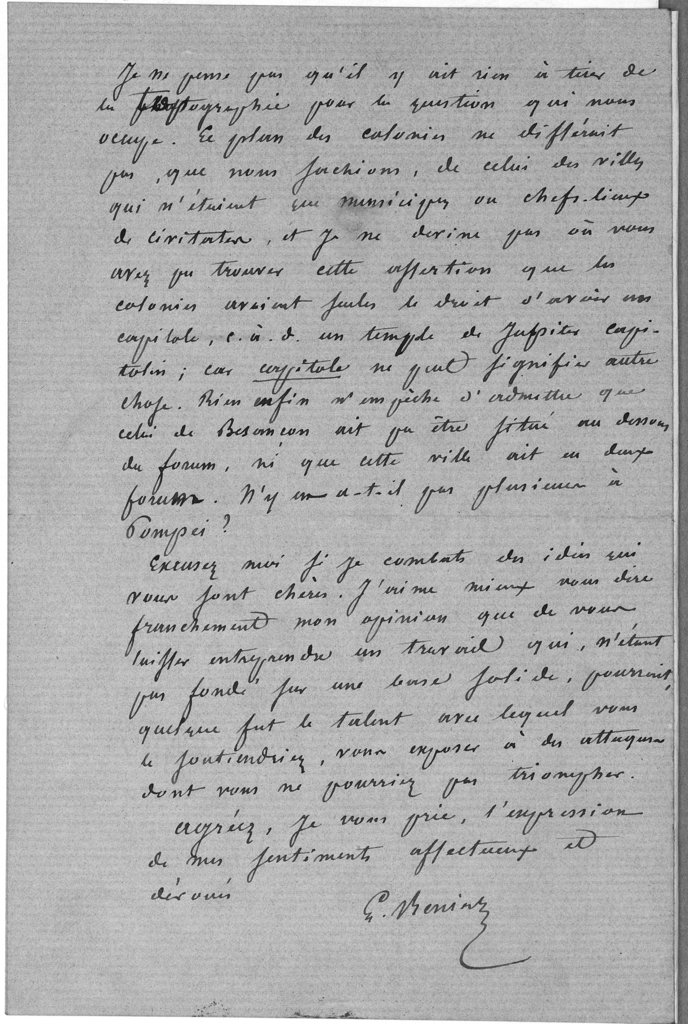 Je ne pense pas qu'il y ait rien à tirer de
la topographie pour la question qui nous
occupe. Le plan des colonies ne différait
pas, que nous sachions, de celui des villes
qui n'étaient que municipes ou chefs-lieux
de civitates, et je ne devine pas où vous
avez pu trouver cette assertion que les
colonies avaient seules le droit d'avoir un
capitole, c. à. d. un temple de Jupiter capi-
tolin; car capitole ne peut signifier autre
chose. Rien enfin n'empêche d'admettre que
celui de Besancon ait pu être situé au dessous
du forum, ni que cette ville ait eu deux
forums. N'y en a-t-il pas plusieurs à
Pompei?
Excusez moi si je combats des idées qui
vous sont chères. J'aime mieux vous dire
franchement mon opinion que de vous
laisser entreprendre un travail qui, n'étant
pas fondé sur une base solide, pourrait,
quelque fut le talent avec lequel vous
le soutiendriez, vous exposer à des attaques
dont vous ne pourriez pas triompher.
Agréez, je vous prie, l'expression
de mes sentiments affectueux et
dévoués